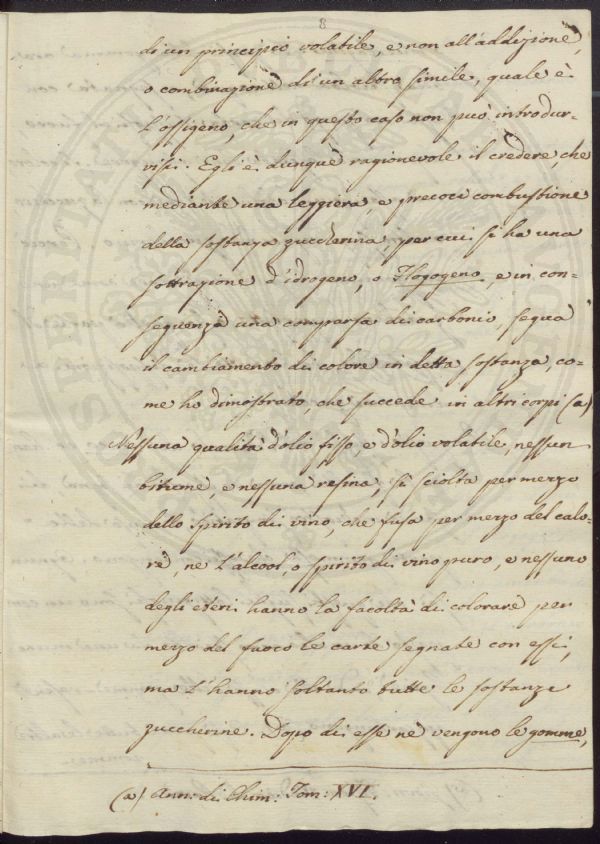 8
di un principio volatile, e non all'addizione,
o combinazione di un altro simile, quale è
l'ossigeno, che in questo caso non può introdur-
visi. Egli è dunque ragionevole il credere, che
mediante una leggiera, e precoce combustione
della sostanza zuccherina, per cui si ha una
sottrazione d'idrogeno, o flogogeno, e in con-
seguenza una comparsa di carbonio, segua
il cambiamento di colore in detta sostanza, co-
me ho dimostrato, che succede in altri corpi (a)
Nessuna qualità d'olio fisso, e d'olio volatile, nessun
bitume, e nessuna resina, sì sciolta per mezzo
dello spirito di vino, che fusa per mezzo del calo-
re, ne l'alcool, o spirito di vino puro, e nessuno
degli eteri hanno la facoltà di colorare per
mezzo del fuoco le carte segnate con essi,
ma l'hanno soltanto tutte le sostanze
zuccherine. Dopo di esse ne vengono le gomme,
(a) Ann: di Chim: Tom: XVI.